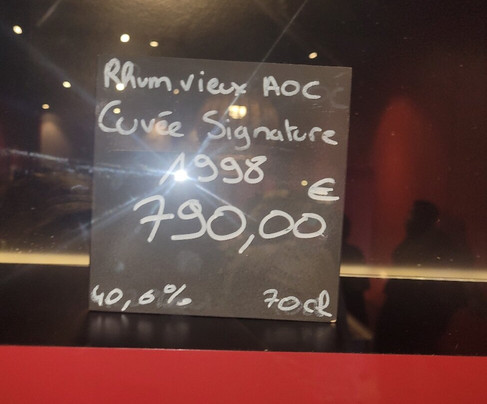 Rhum vieux AOC
Cuvée Signature
1998
€
790,00
40,6% 70cl